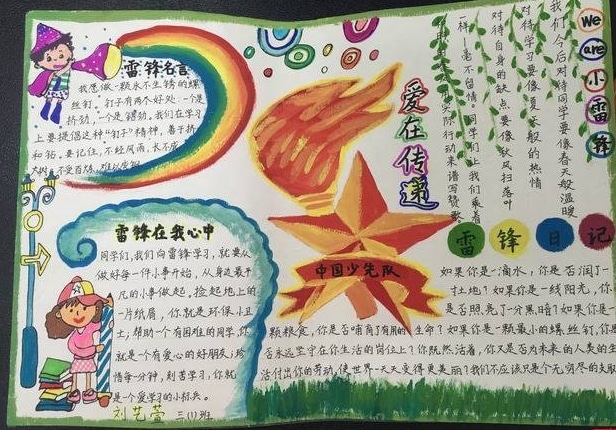 雷锋名言
我愿做一颗永不生锈的螺
丝钉。钉子有两个好处:一个是
挤劲,一个是钻劲,我们在学习
上要提倡这种"钉子"精神,善于挤
和钻。要记住,不经风雨,长不成
大树,不受百炼,难以成钢
爱在传递
We are 小雷锋
我们今后对待同学要像春天般温暖
对待学习要像夏天般的热情
对待自身的缺点要像秋风扫落叶
一样一毫不留情。同学们让我们乘着
实际行动来谱写赞歌
中国少先队
雷锋在我心中
同学们,我们向雷锋学习,就要从
做好每一件小事开始,从身边最平
凡的小事做起。捡起地上的
一片纸屑,你就是环保小卫
士;帮助一个有困难的同学,你
就是一个有爱心的好朋友;珍
惜每一分钟,刻苦学习,你就
是一个爱学习的小标兵。
刘艺萱 三(1)班
雷锋日记
如果你是一滴水,你是否润了一
寸土地?如果你是一线阳光,你
是否照亮了一分黑暗?如果你是一
颗粮食,你是否哺育了有用的生命?如果你是一颗最小的螺丝钉,你是
否永远坚守在你生活的岗位上?你既然活着,你又是否为未来的人类的生
活付出你的劳动,使世界一天天变得更美丽?我们不应该只是个无穷尽的支取